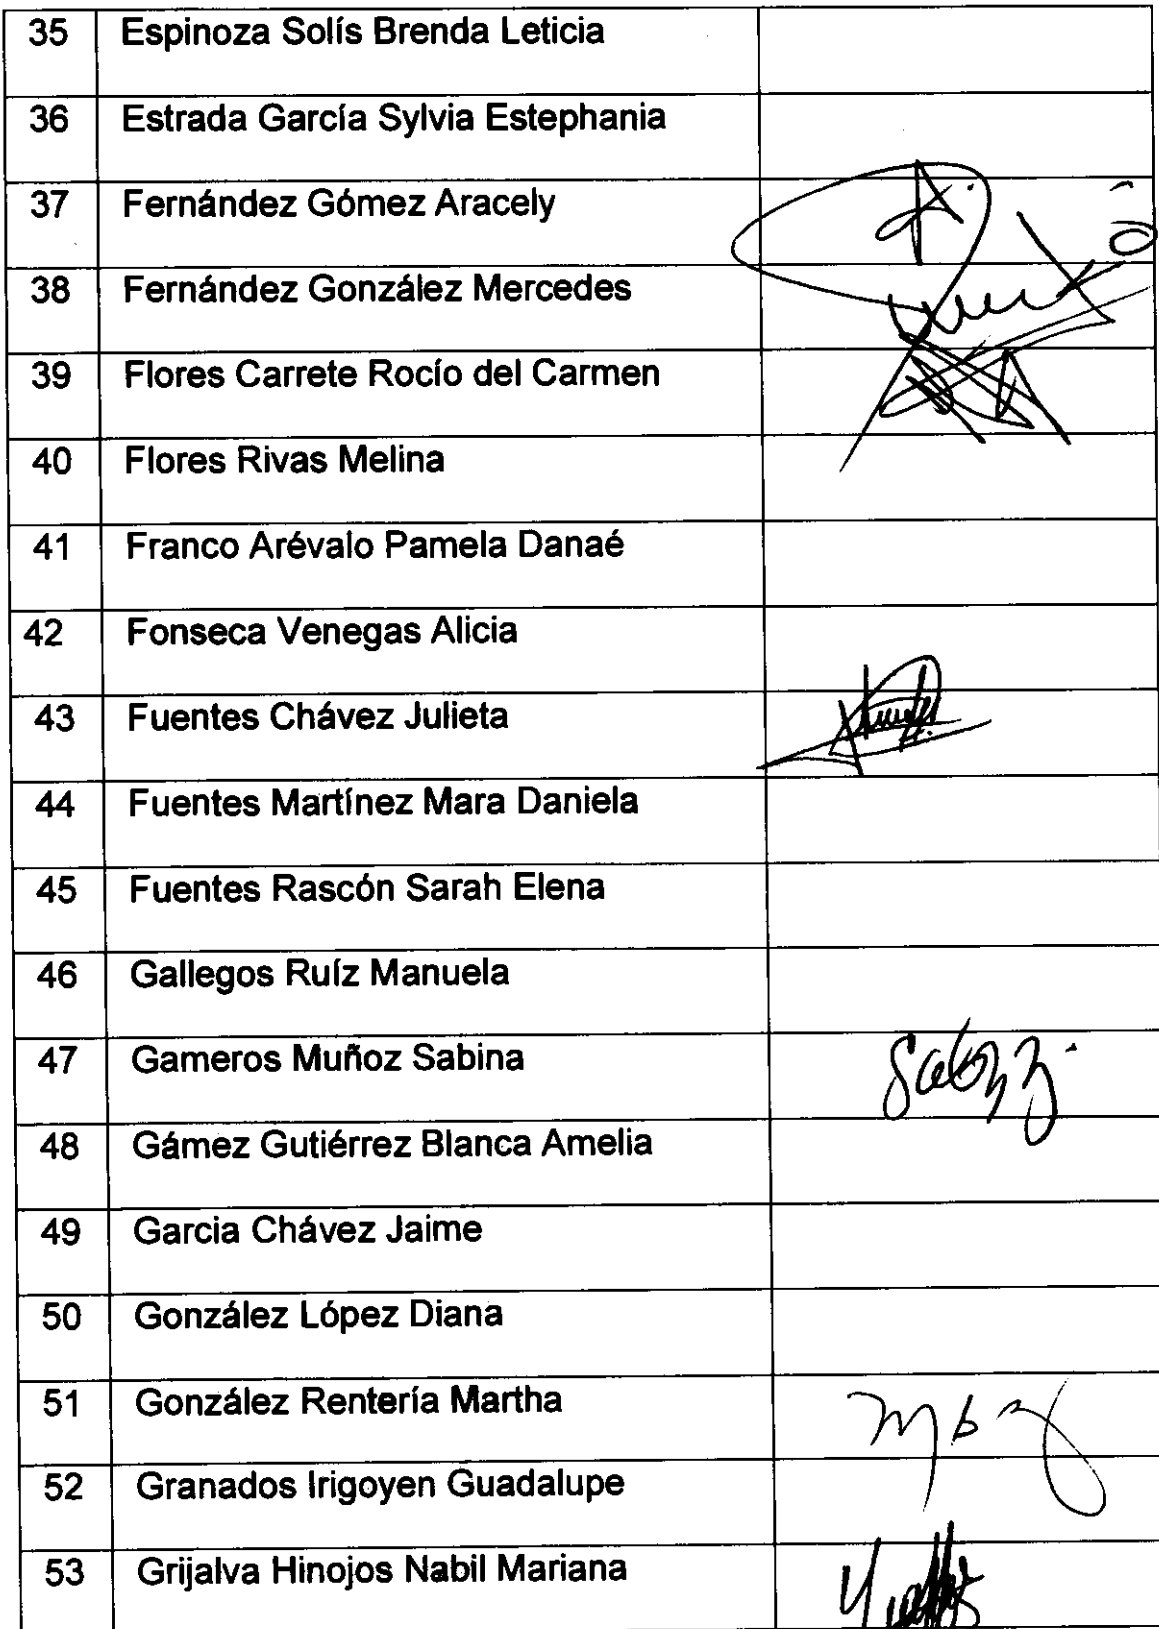 35 Espinoza Solís Brenda Leticia
36 Estrada García Sylvia Estephania
37 Fernández Gómez Aracely
38 Fernández González Mercedes
39 Flores Carrete Rocío del Carmen
40 Flores Rivas Melina
41 Franco Arévalo Pamela Danaé
42 Fonseca Venegas Alicia
43 Fuentes Chávez Julieta
44 Fuentes Martínez Mara Daniela
45 Fuentes Rascón Sarah Elena
46 Gallegos Ruíz Manuela
47 Gameros Muñoz Sabina
48 Gámez Gutiérrez Blanca Amelia
49 Garcia Chávez Jaime
50 González López Diana
51 González Rentería Martha
52 Granados Irigoyen Guadalupe
53 Grijalva Hinojos Nabil Mariana